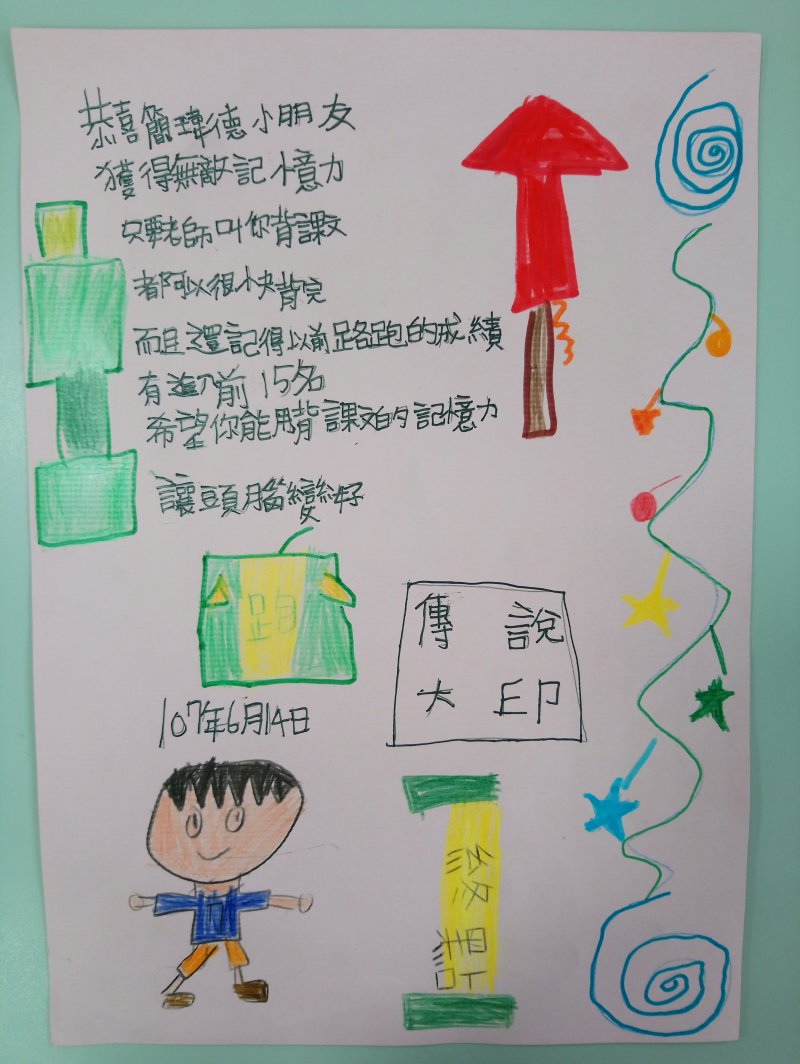 恭喜簡瑋德小朋友
獲得無敵記憶力
只要老師叫你背課文
都可以很快背完
而且還記得以前路跑的成績
有進入前15名
希望你能用背課文的記憶力
讓頭腦變好
跑
傳說
大印
107年6月14日